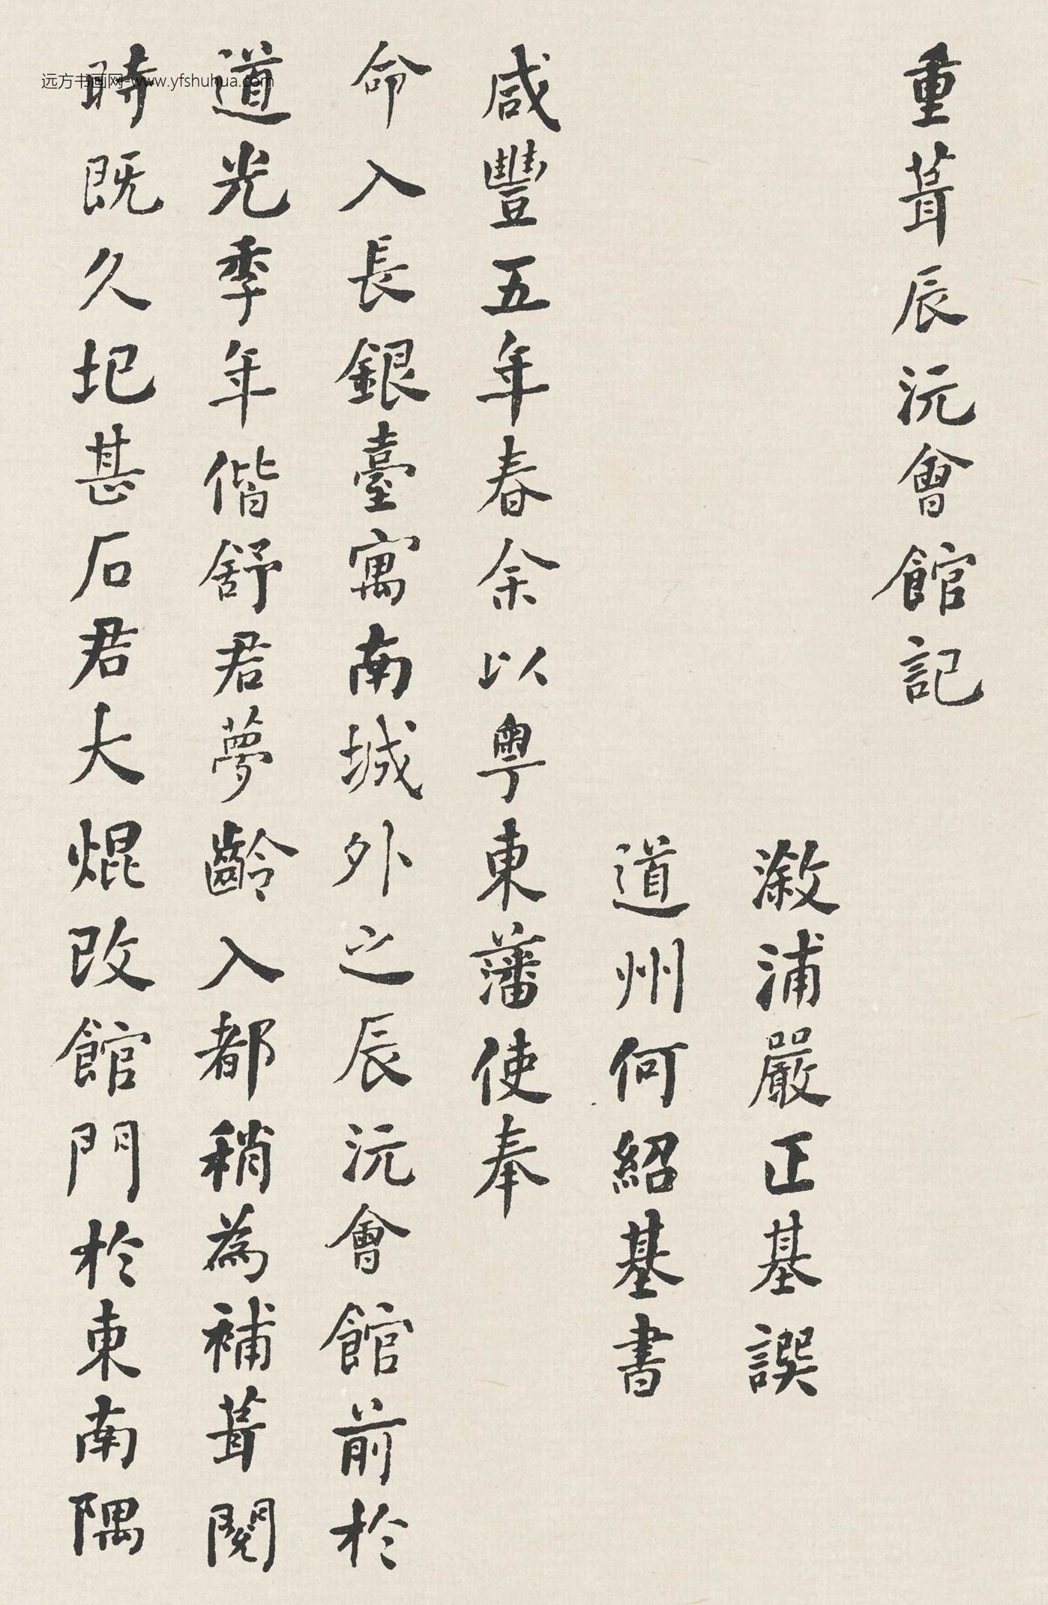 重葺辰沅會館記
漵浦嚴正基譔
道州何紹基書
咸豐五年春余以粵東藩使奉
命入長銀臺寓南城外之辰沅會館前於
道光季年偕舒君夢齡入都稍為補葺閱
時既久圮甚石君大焜改館門於東南隅
远方书画网-www.yfshuhua.com